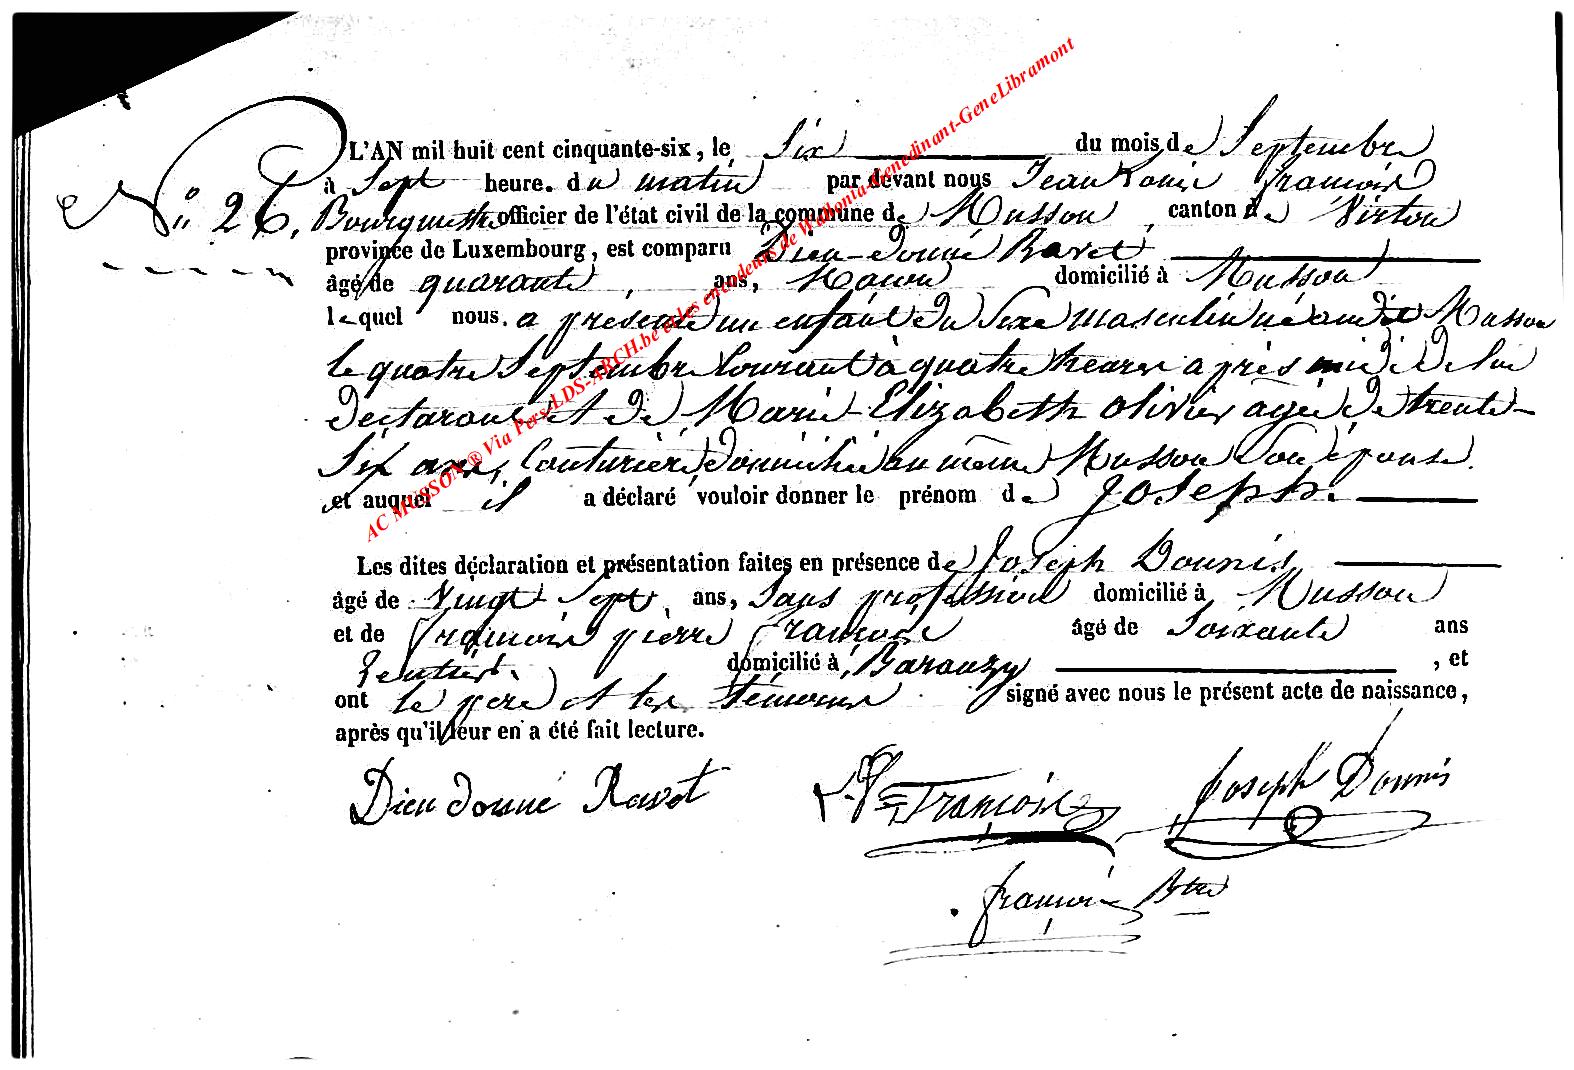 L'AN mil huit cent cinquante-six, le Six du mois de Septembre
à Sept heure. du matin par devant nous Jean Louis françois
N° 26. Bourgmestre officier de l'état civil de la commune de Musson, canton de Virton
province de Luxembourg, est comparu Dieu-donné Ravet
âgé de quarante ans, Maçon domicilié à Musson
lequel nous. a présenté un enfant du Sexe masculin né audit Musson
le quatre Septembre Courant à quatre heures après midi de lui
déclarant et de Marie-Elizabeth Olivier agée de trente-
Six ans, Couturière domiciliée au même Musson Son épouse.
et auquel il a déclaré vouloir donner le prénom de Joseph.
Les dites déclaration et présentation faites en présence de Joseph Dounis
âgé de Vingt-Sept ans, Sans profession domicilié à Musson
et de françois pierre françois âgé de Soixante ans
Rentier. domicilié à Baranzy, et
ont le père et les témoins signé avec nous le présent acte de naissance,
après qu'il leur en a été fait lecture.
Dieu donné Ravet françois Joseph Dounis
françois Btre
AC MUSSON ® Via Pers LDS-ARCH.be et les encodeurs de Wallonia-Genedinant-GeneLibramont